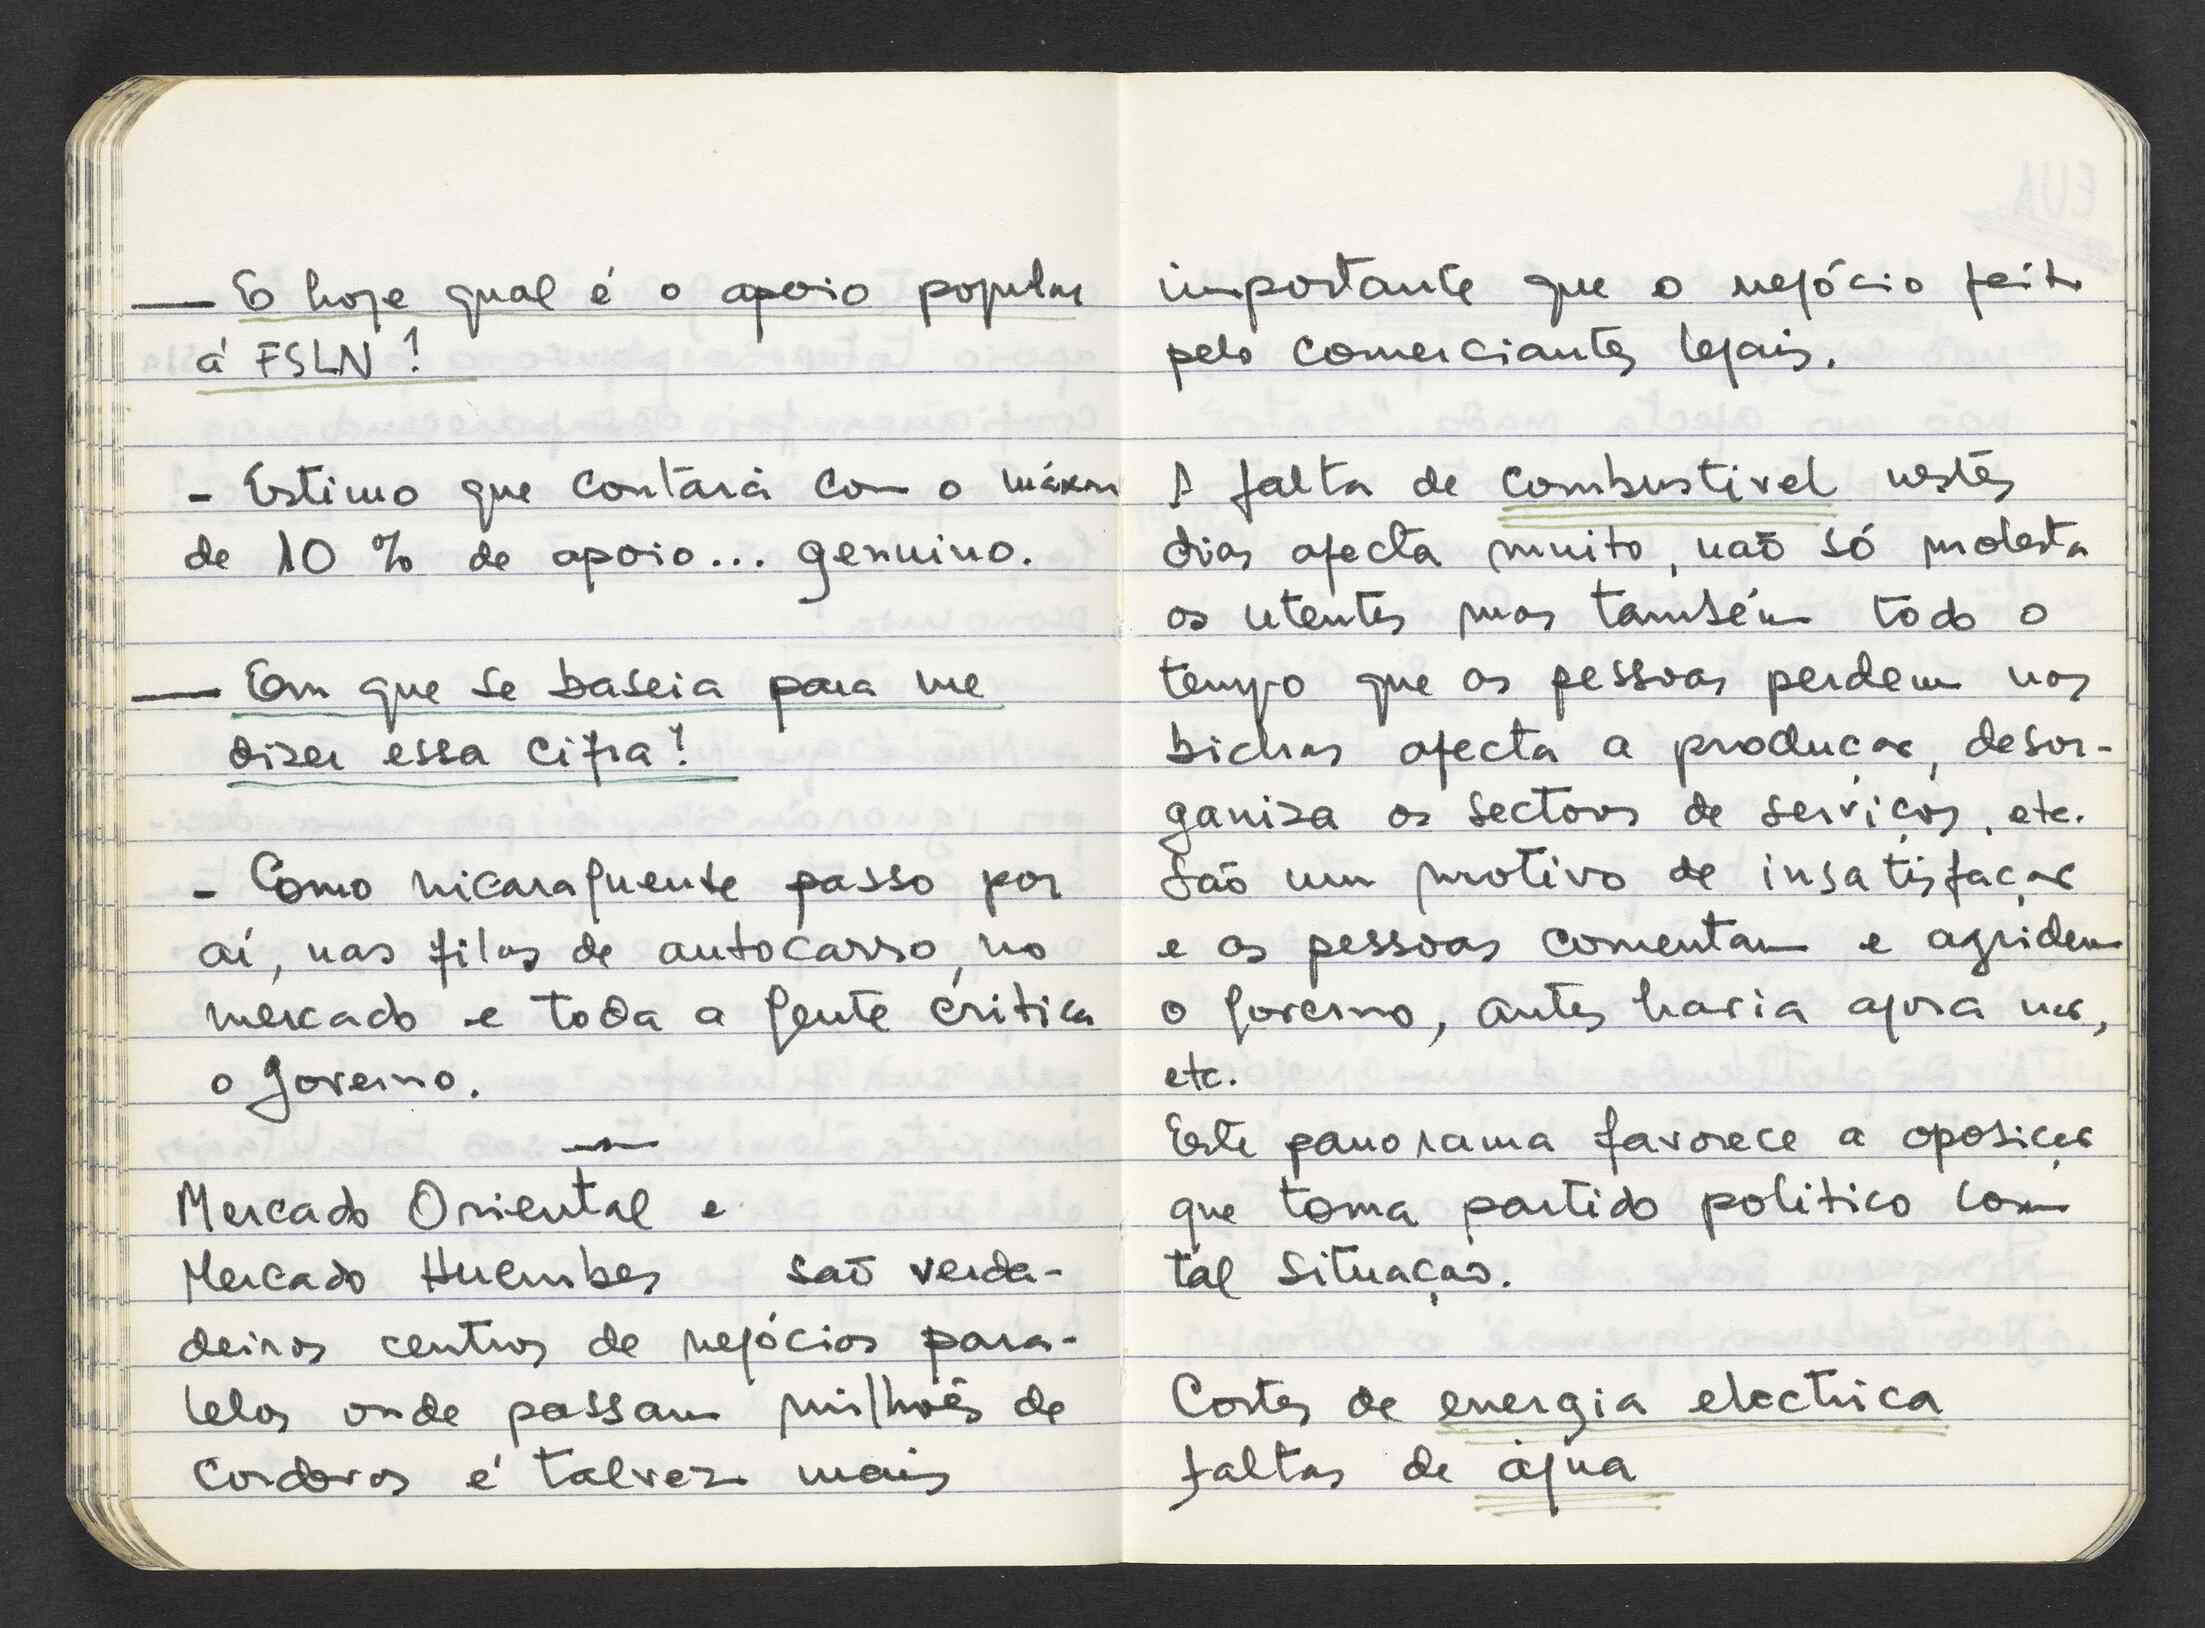 — E hoje qual é o apoio popular
á FSLN?
- Estimo que contará com o máximo
de 10 % de apoio... genuino.
— Em que se baseia para me
dizer essa cifra?
- Como nicaraguense passo por
aí, nas filas de autocarro, no
mercado e toda a gente critica
o governo.
Mercado Oriental e
Mercado Huembes são verda-
deiros centros de negócios para-
lelos onde passam milhões de
Cordovas é talvez mais
importante que o negócio feito
pelo comerciantes legais.
A falta de combustivel nestes
dias afecta muito, não só molesta
os utentes mas também todo o
tempo que as pessoas perdem nas
bichas afecta a produção, desor-
ganiza os sectores de serviços, etc.
São um motivo de insatisfação
e as pessoas comentam e agridem
o governo, antes havia agora não,
etc.
Este panorama favorece a oposição
que toma partido politico com
tal situação.
Cortes de energia electrica
faltas de água